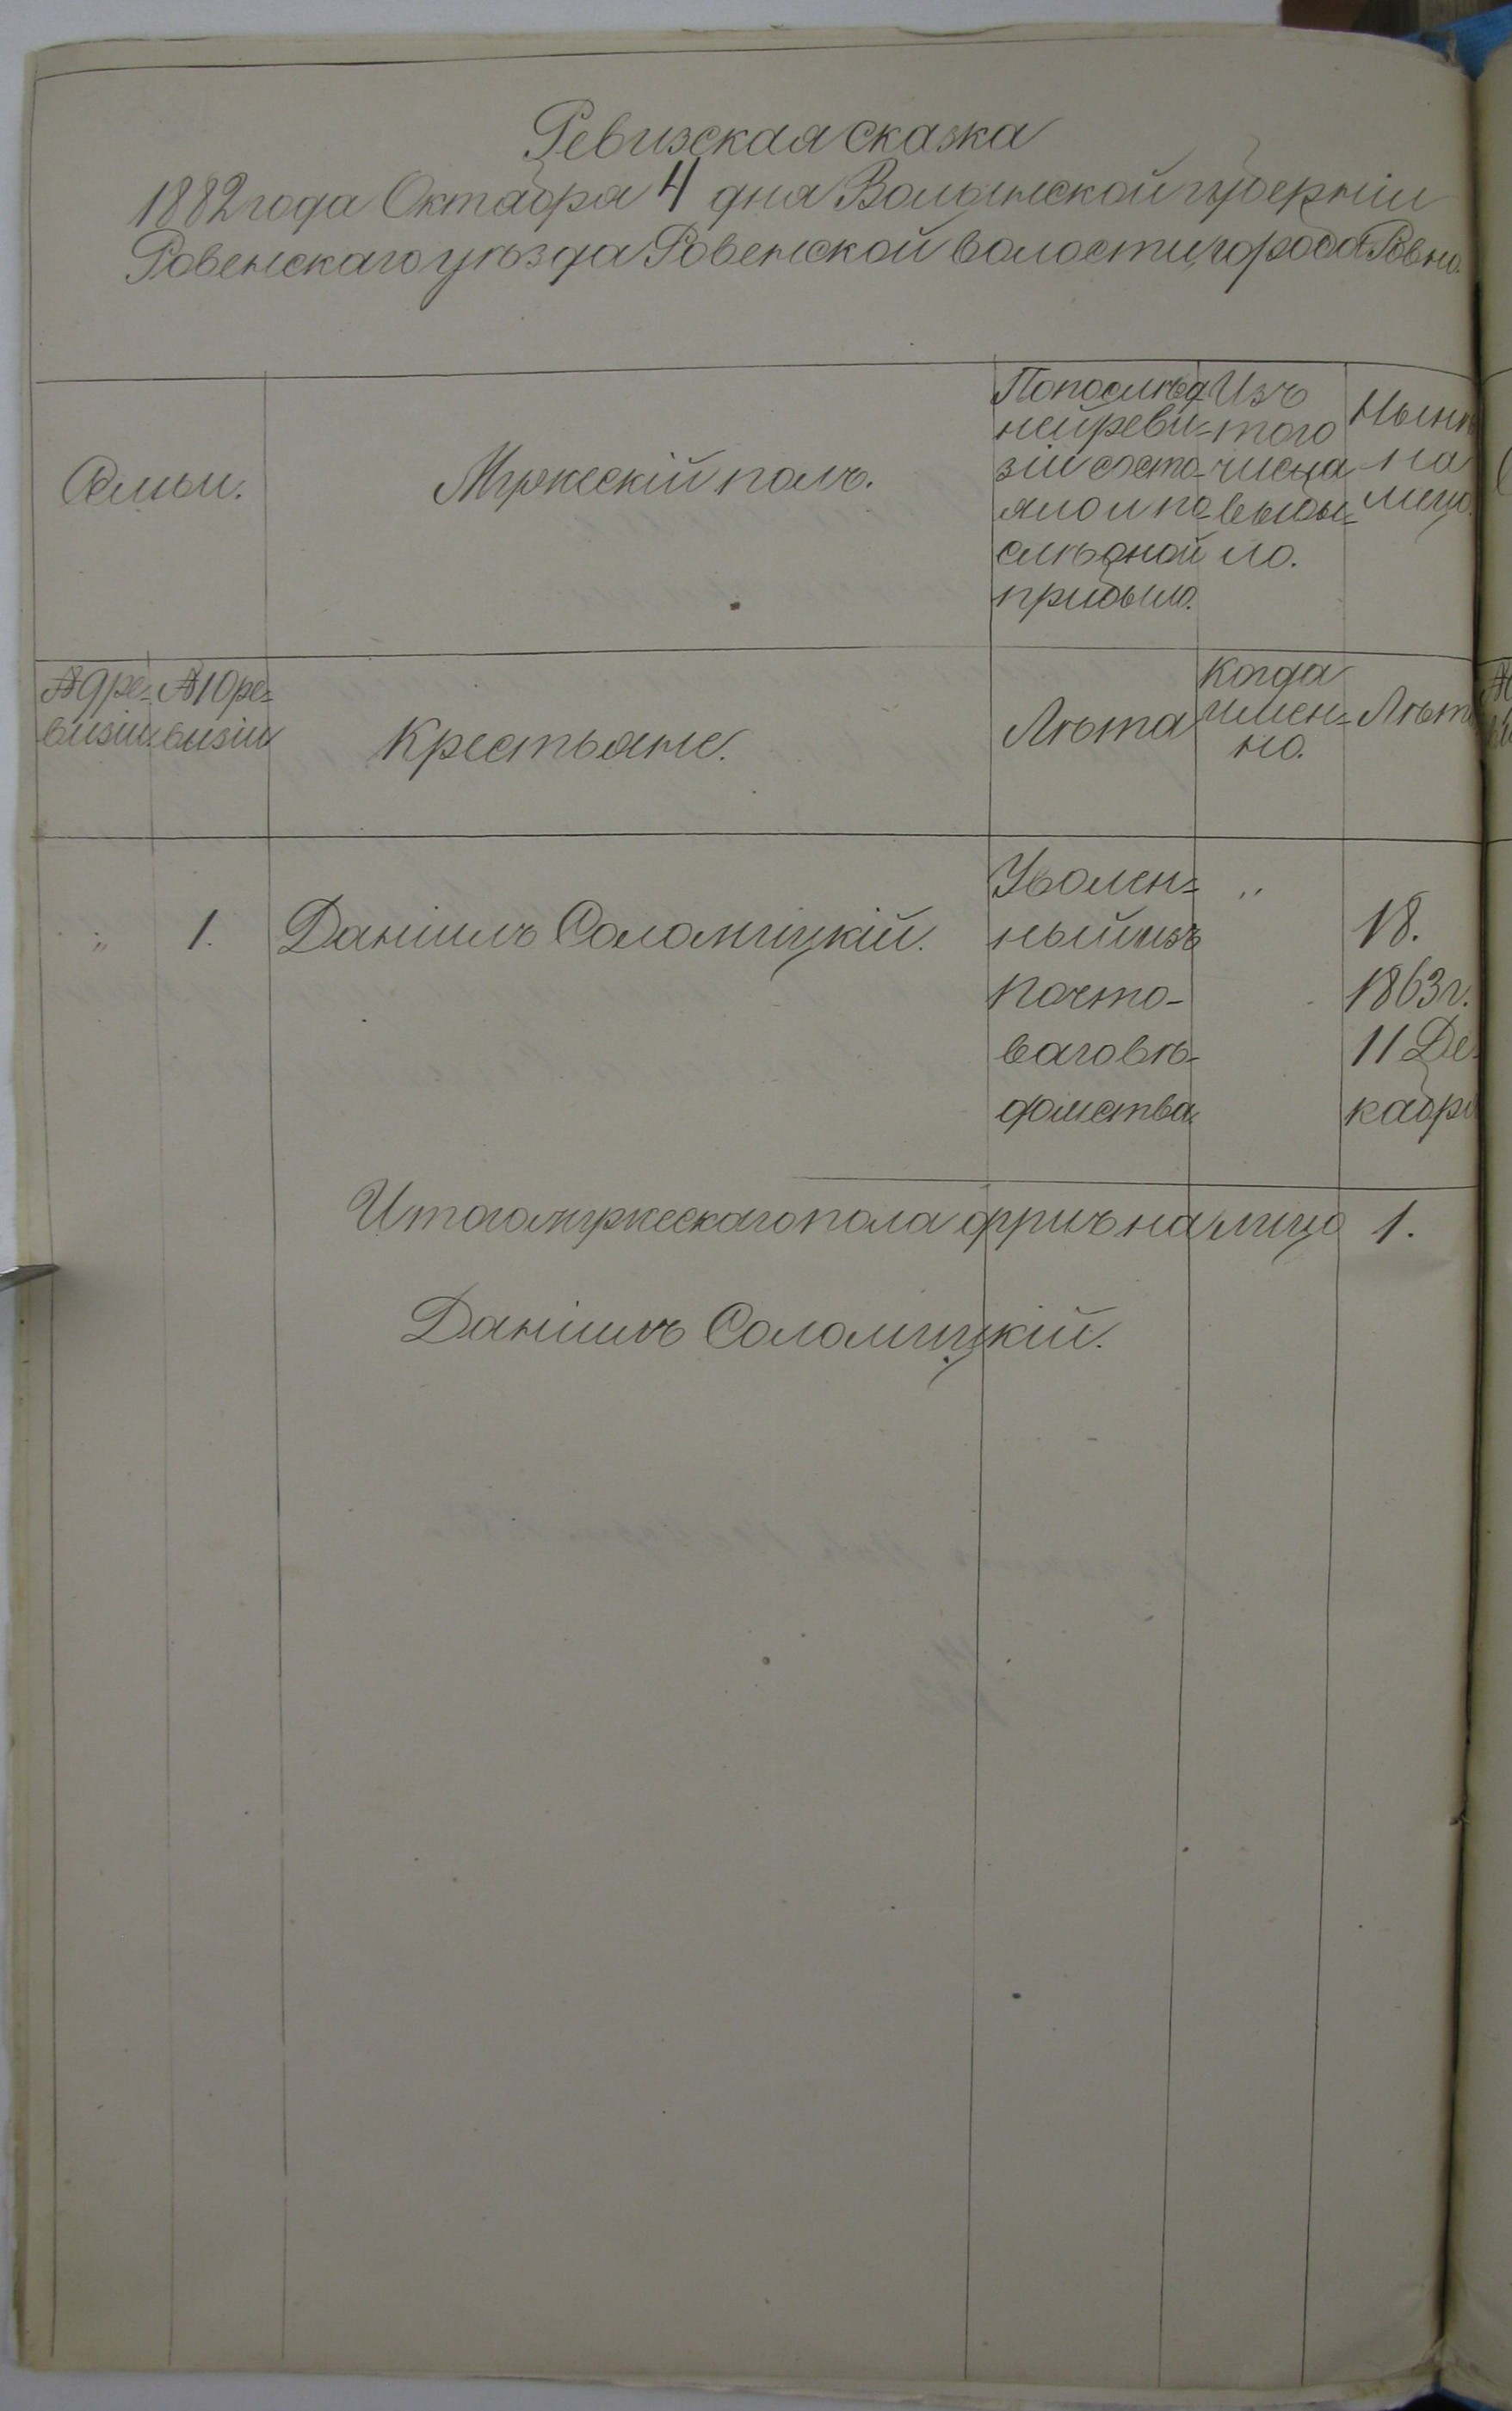 Ревизская сказка
1882 года Октября 4 дня Волынской губерніи
Ровенскаго уѣзда Ровенской волости, города Ровно.
Семьи.
Мужескій полъ.
По послѣд-
ней реви-
зіи состо-
яло и по-
слѣ оной
прибыло.
Изъ
того
числа
выбы-
ло.
Нынѣ
на
лицо.
№ 9 ре-
визіи.
№ 10 ре-
визіи
Крестьяне.
Лѣта
Когда
имен-
но.
Лѣта
„ 1. Даніилъ Соломицкій.
Уволен-
ный изъ
почто-
ваго вѣ-
домства
„
18.
1863 г.
11 Де-
кабря
Итого мужескаго пола душъ на лицо 1.
Даніилъ Соломицкій.